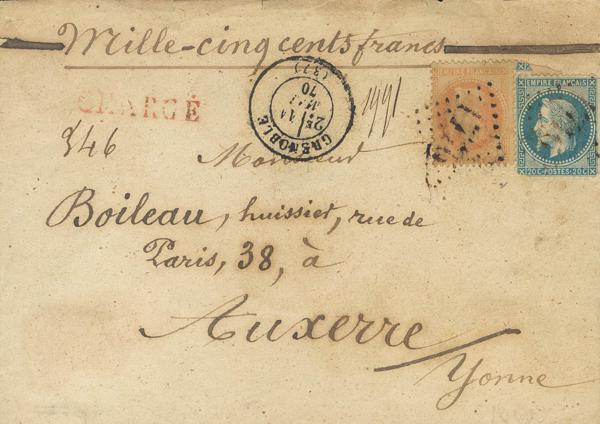 Mille-cinq cents francs
CHARGÉ
GRENOBLE
(37)
2E
14
MAI
70
1991
EMPIRE FRANÇAIS
EMPIRE FRANÇAIS
20 C POSTES 20 C
846
Monsieur
Boileau, huissier, rue de
Paris, 38, à
Auxerre
Yonne